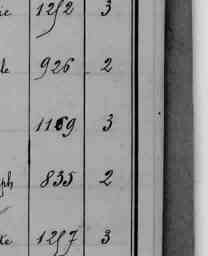 ie 1252 3
le 926 2
1169 3
ph 835 2
xe 1257 3